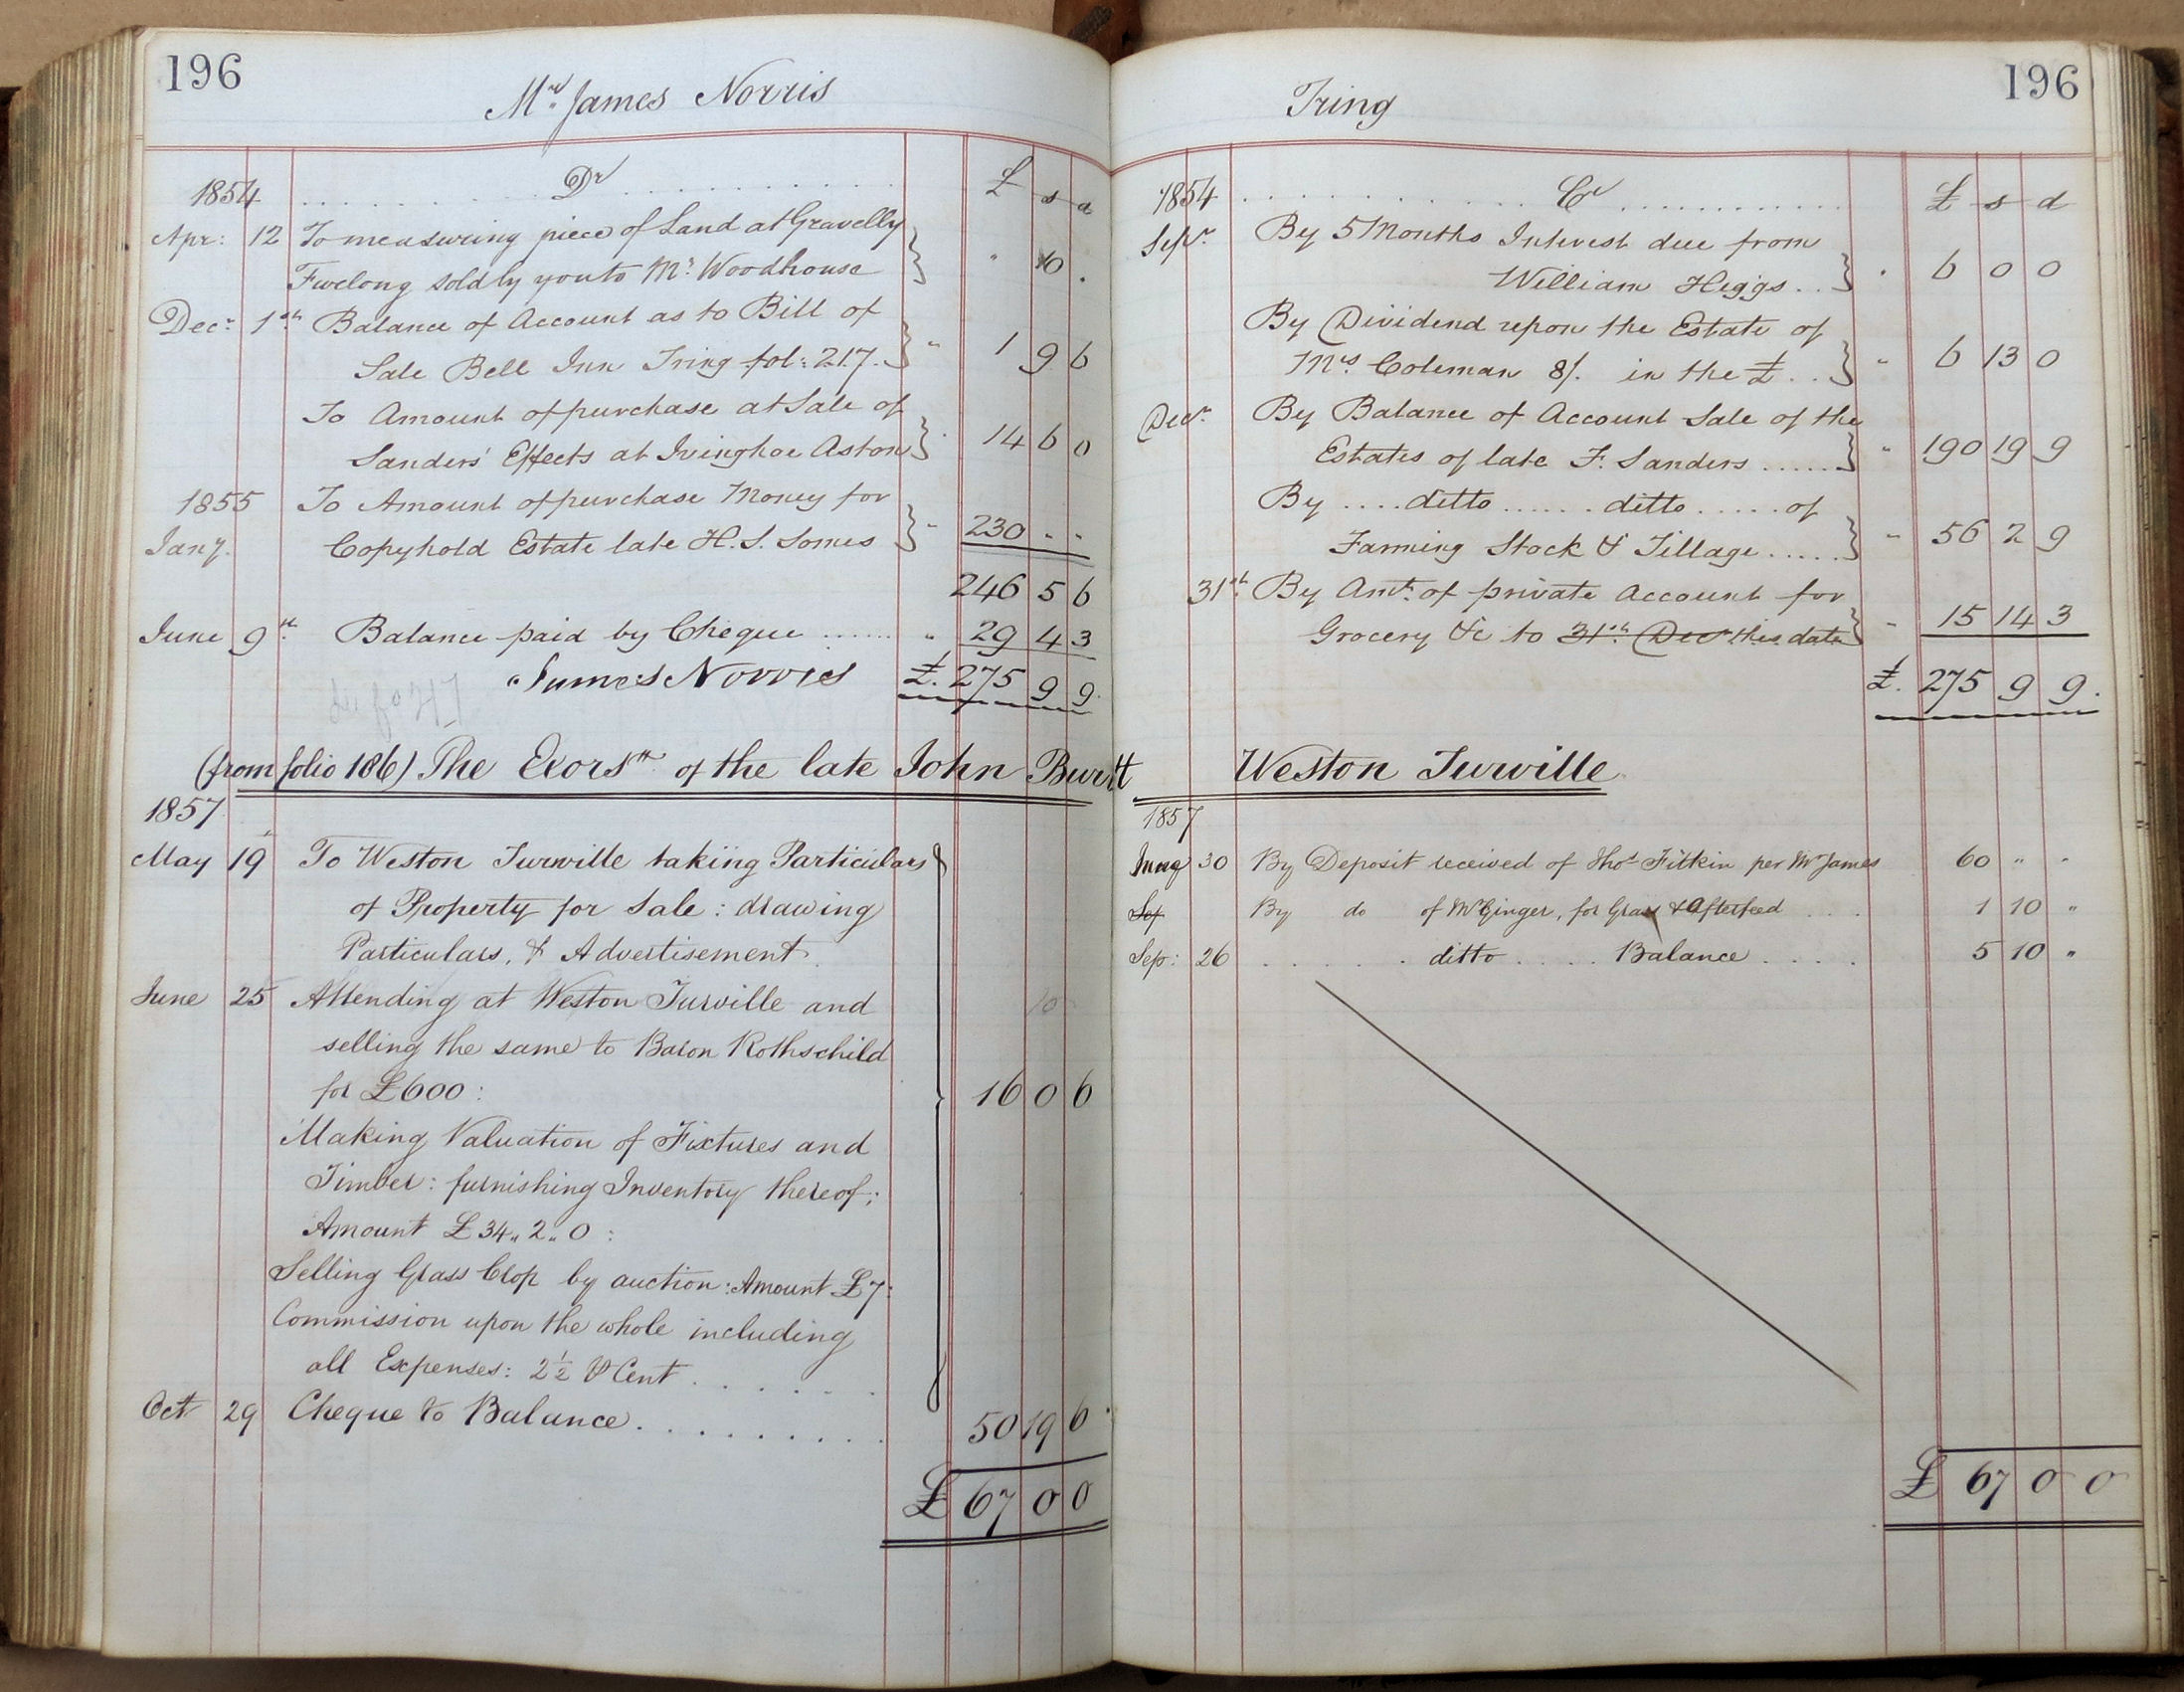 196
Mr. James Norris
1854 Dr £ s d
Apr: 12 To measuring piece of Land at Gravelly
Furlong sold by you to Mr. Woodhouse " 10 .
Decr. 1st Balance of Account as to Bill of
Sale Bell Inn Tring fol: 217. " 1 9 6
To Amount of purchase at Sale of
Sanders' Effects at Ivinghoe Aston " 14 6 0
1855 To Amount of purchase Money for
Jany. Copyhold Estate late H. S. Somes " 230 " "
246 5 6
June 9th Balance paid by Cheque ...... " 29 4 3
James Norris £. 275 9 9.
(from folio 186) The Exors of the late John Burtt
1857
May 19 To Weston Turville taking Particulars
of Property for Sale : drawing
Particulars, & Advertisement.
June 25 Attending at Weston Turville and 10
selling the same to Baron Rothschild
for £600 : 16 0 6
Making Valuation of Fixtures and
Timber : furnishing Inventory thereof ;
Amount £34 " 2 " 0 :
Selling Grass Crop by auction : Amount £7 :
Commission upon the whole including
all Expenses : 2½ ⅌ Cent . . . . .
Oct 29 Cheque to Balance . . . . . . . . . 50 19 6
£ 67 0 0
196
Tring
1854 Cr £ s d
Sepr. By 5 Months Interest due from
William Higgs . . " 6 0 0
By Dividend upon the Estate of
Mrs. Coleman 8/. in the £ . . " 6 13 0
Decr. By Balance of Account Sale of the
Estates of late F. Sanders ...... " 190 19 9
By .... ditto ...... ditto ..... of
Farming Stock & Tillage ..... " 56 2 9
31st. By Amt. of private Account for
Grocery &c to 31st. Decr this date " 15 14 3
£. 275 9 9.
Weston Turville
1857
30 By Deposit received of Thos Fitkin per Mr James 60 " "
Sep By do of Mr Ginger, for Grass & Afterfeed . . . 1 10 "
Sep: 26 . . . . . ditto . . . . Balance . . . . 5 10 "
£ 67 0 0